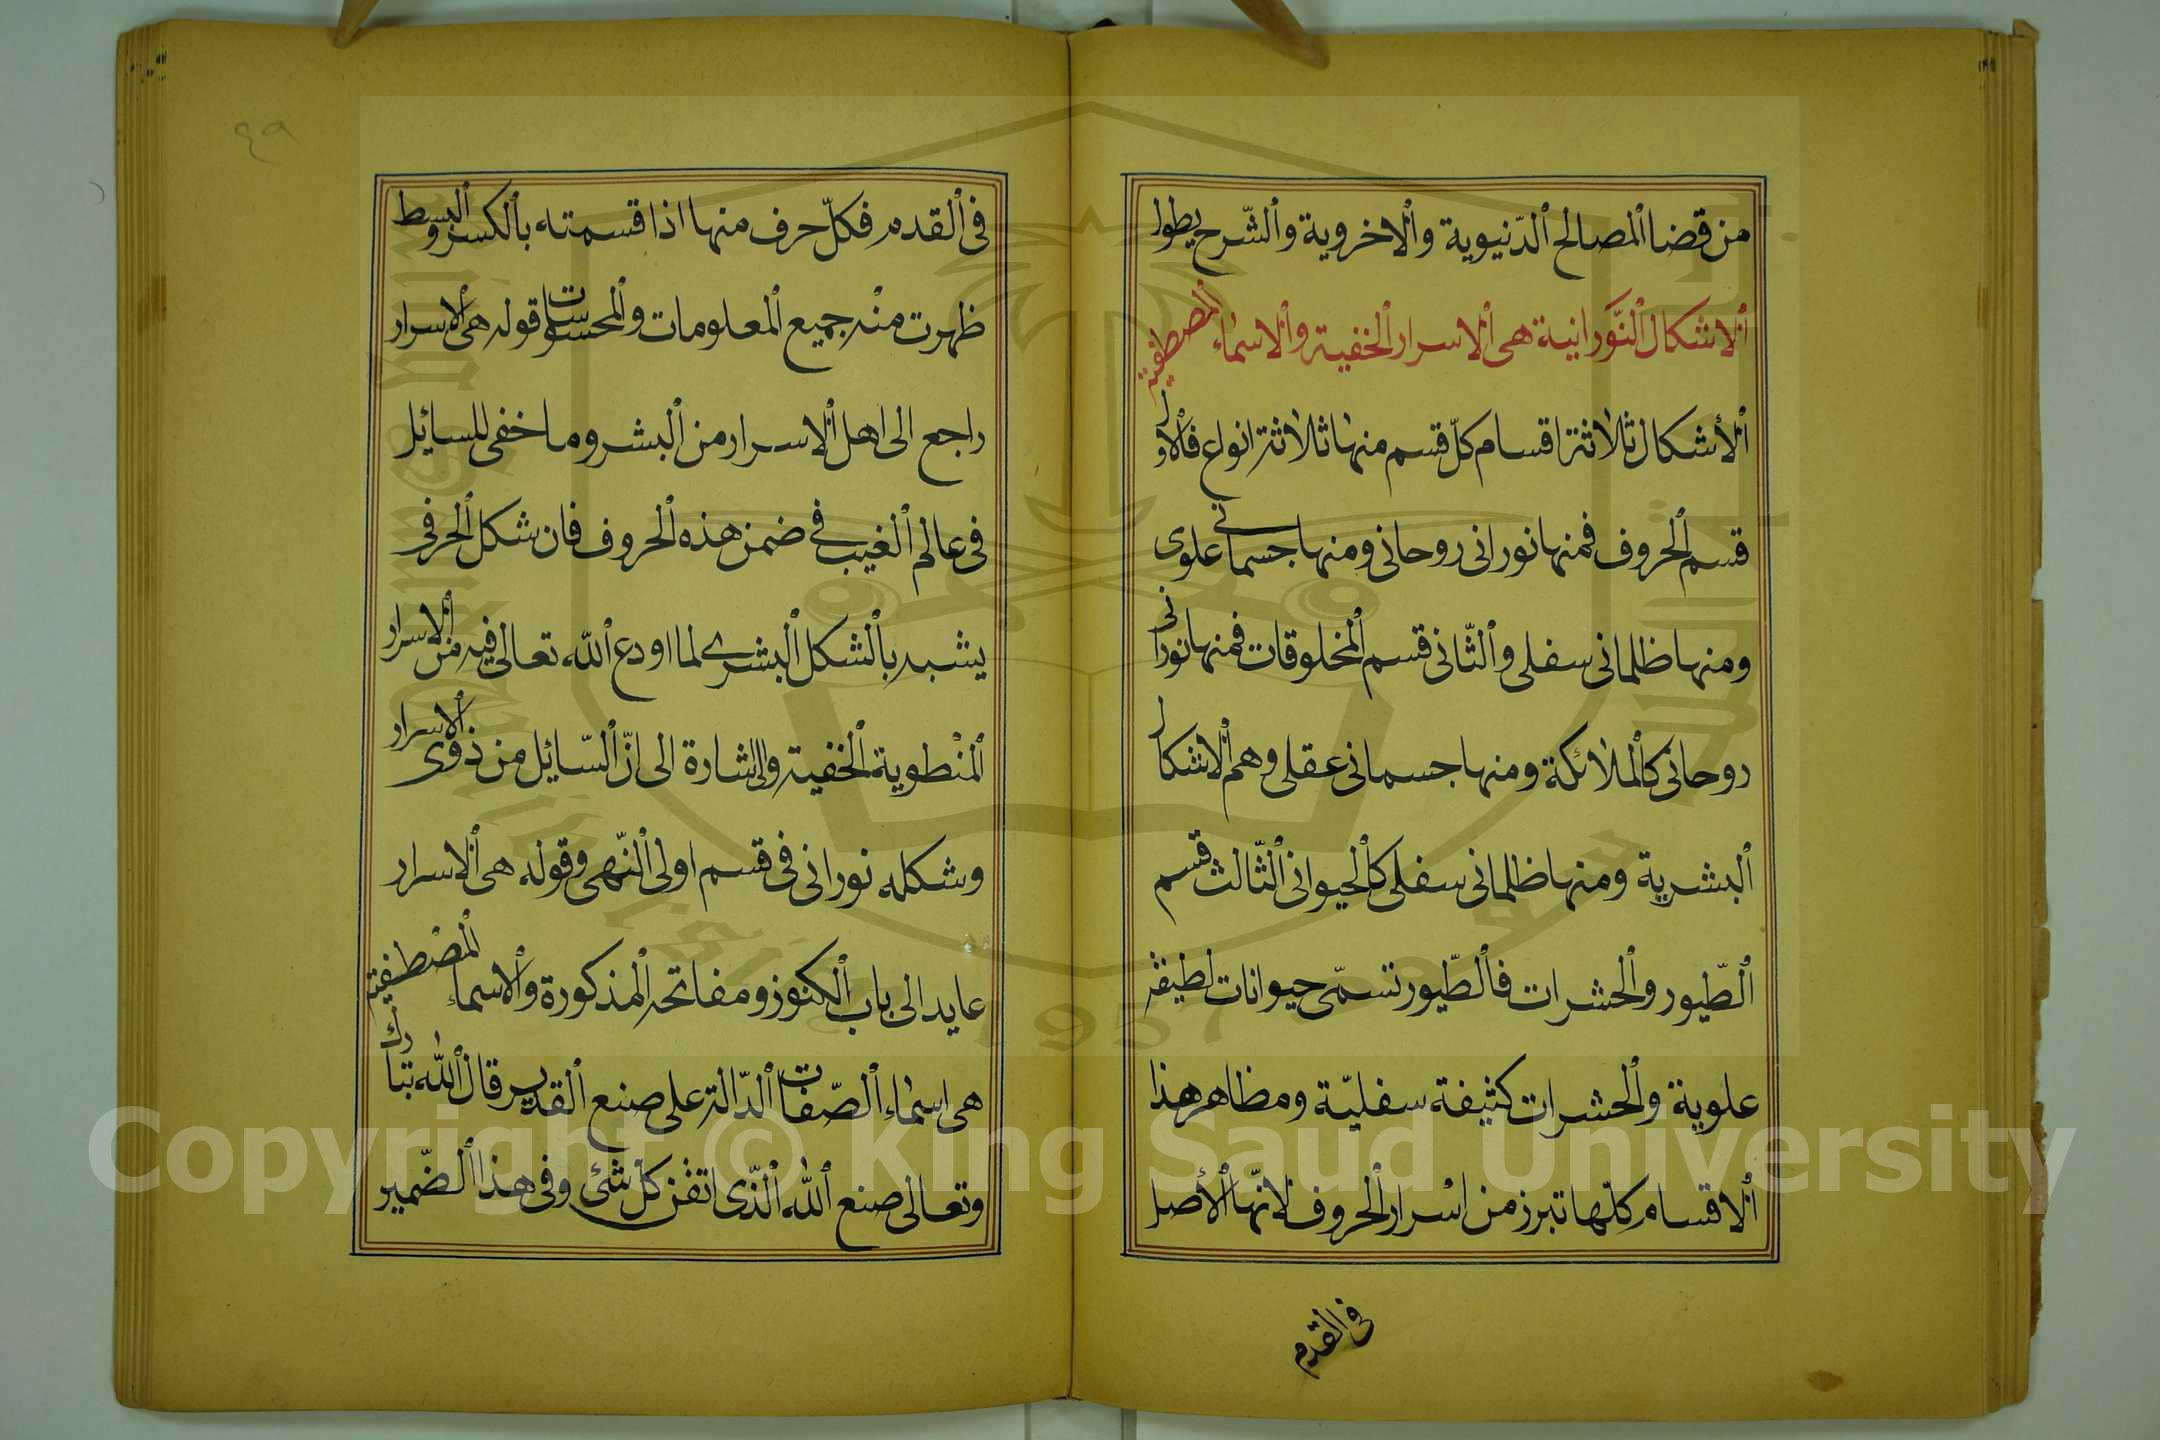 من قضا المصالح الدّنيوية والاخروية والشّرح يطول
الاشكال النّورانية هى الاسرار الخفية والاسماء المصطفية
الأشكال ثلاثة اقسام كلّ قسم منها ثلاثة انواع فالاول
قسم الحروف فمنها نورانى روحانى ومنها جسمانى علوى
ومنها ظلمانى سفلى والثّانى قسم المخلوقات فمنها نورانى
روحانى كالملائكة ومنها جسمانى عقلى وهم الاشكال
البشرية ومنها ظلمانى سفلى كالحيوانى الثّالث قسم
الطّيور والحشرات فالطّيور تسمّى حيوانات لطيفة
علوية والحشرات كثيفة سفليّة ومظاهر هذا
الاقسام كلّها تبرز من اسْرار الحروف لانّها الأصل
فى القدم
٤٩
فى القدم فكلّ حرف منها اذا قسمته بالكسر والبسط
ظهرت منْه جميع المعلومات والمحسوسات قوله هى الاسرار
راجع الى اهل الاسرار من البشر وما خفى للسائل
فى عالم الغيب فى ضمن هذه الحروف فان شكل الحرفى
يشبه بالشكل البشرى لما اودع الله تعالى فيه من الاسرار
المنْطوية الخفية والاشارة الى انّ السّائل من ذوى الاسرار
وشكله نورانى فى قسم اولى النّهى وقوله هى الاسرار
عايد الى باب الكنوز ومفاتحه المذكورة والاسماء المصْطفية
هى اسماء الصّفات الدّالة على صنع القدير قال الله تبارك
وتعالى صنع الله الّذى اتقن كلّ شئ وفى هذا الضّمير
Copyright © King Saud University
1957